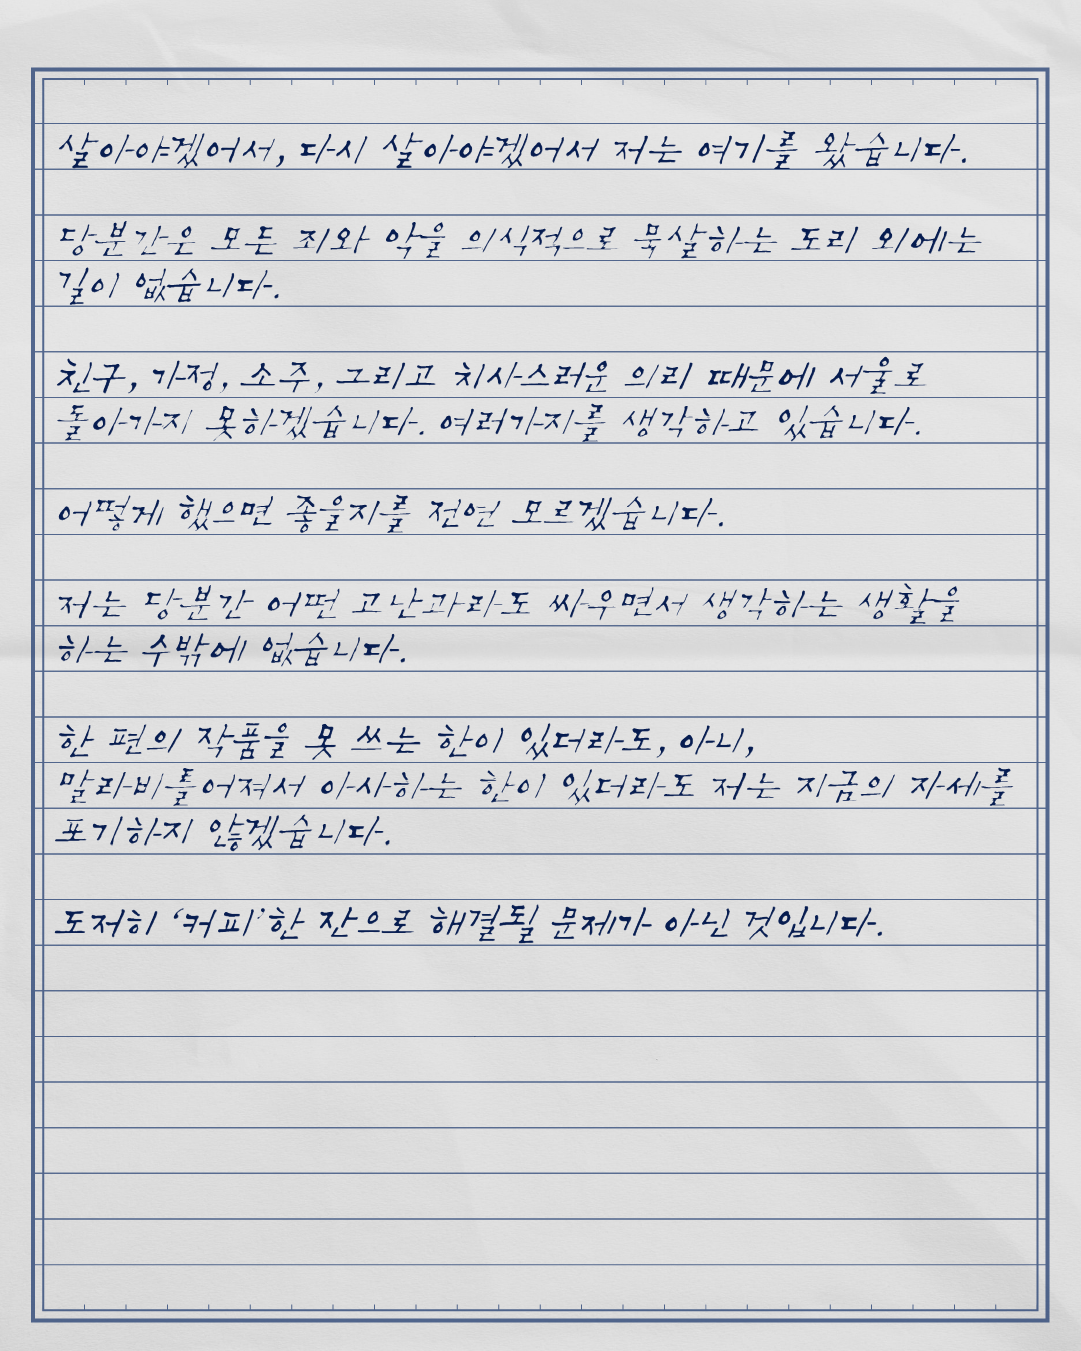 살아야겠어서, 다시 살아야겠어서 저는 여기를 왔습니다.
당분간은 모든 죄와 악을 의식적으로 묵살하는 도리 외에는
길이 없습니다.
친구, 가정, 소주, 그리고 치사스러운 의리 때문에 서울로
돌아가지 못하겠습니다. 여러가지를 생각하고 있습니다.
어떻게 했으면 좋을지를 전연 모르겠습니다.
저는 당분간 어떤 고난과라도 싸우면서 생각하는 생활을
하는 수밖에 없습니다.
한 편의 작품을 못 쓰는 한이 있더라도, 아니,
말라비틀어져서 아사하는 한이 있더라도 저는 지금의 자세를
포기하지 않겠습니다.
도저히 ‘커피’한 잔으로 해결될 문제가 아닌 것입니다.